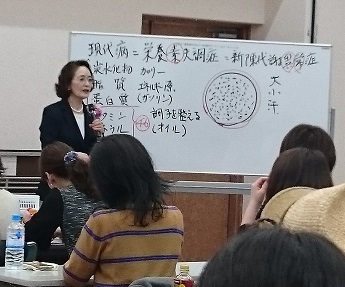 現代病=栄養素失調症=新陳代謝異常症
炭水化物 カロリー
脂質 エネルギー源
蛋白質 (ガソリン)
ビタミン 調子を整える
ミネラル (オイル)
大
小
汗